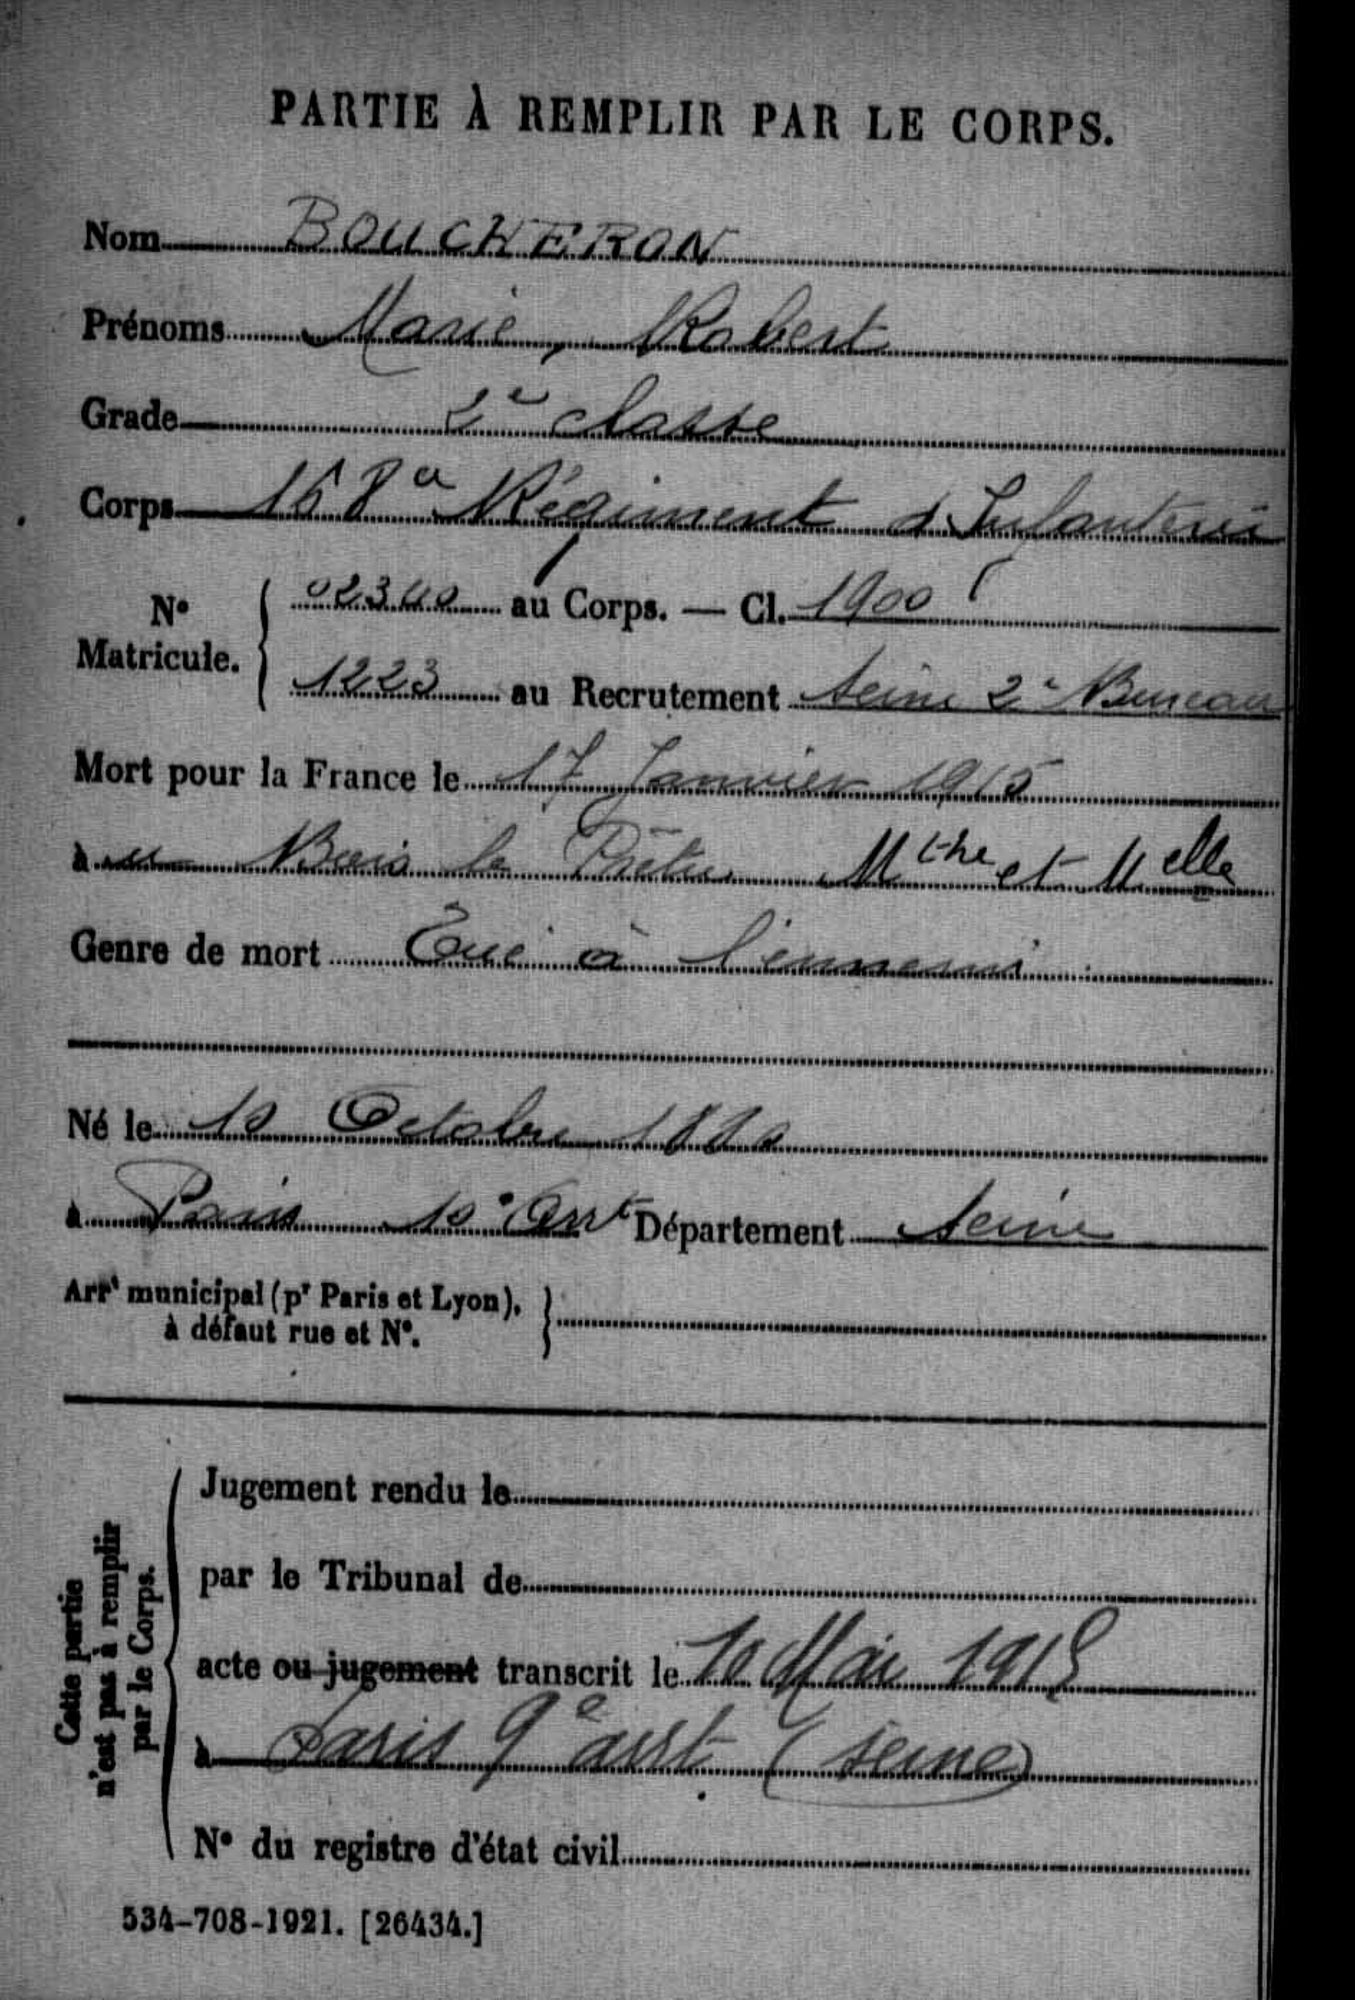 PARTIE À REMPLIR PAR LE CORPS.
Nom BOUCHERON
Prénoms Marie, Robert
Grade 2e classe
Corps 168e Régiment d'Infanterie
N° Matricule. 02340 au Corps. — Cl. 1900
1223 au Recrutement Seine 2e Bureau
Mort pour la France le 17 Janvier 1915
à au Bois le Prêtre Mthe et Melle
Genre de mort Tué à l'ennemi
Né le 10 Octobre 1880
à Paris 10e Arrt Département Seine
Arrt municipal (pr Paris et Lyon), à défaut rue et N°.
Cette partie n'est pas à remplir par le Corps.
Jugement rendu le
par le Tribunal de
acte ou jugement transcrit le 10 Mai 1915
à Paris 9e arrt (Seine)
N° du registre d'état civil
534-708-1921. [26434.]